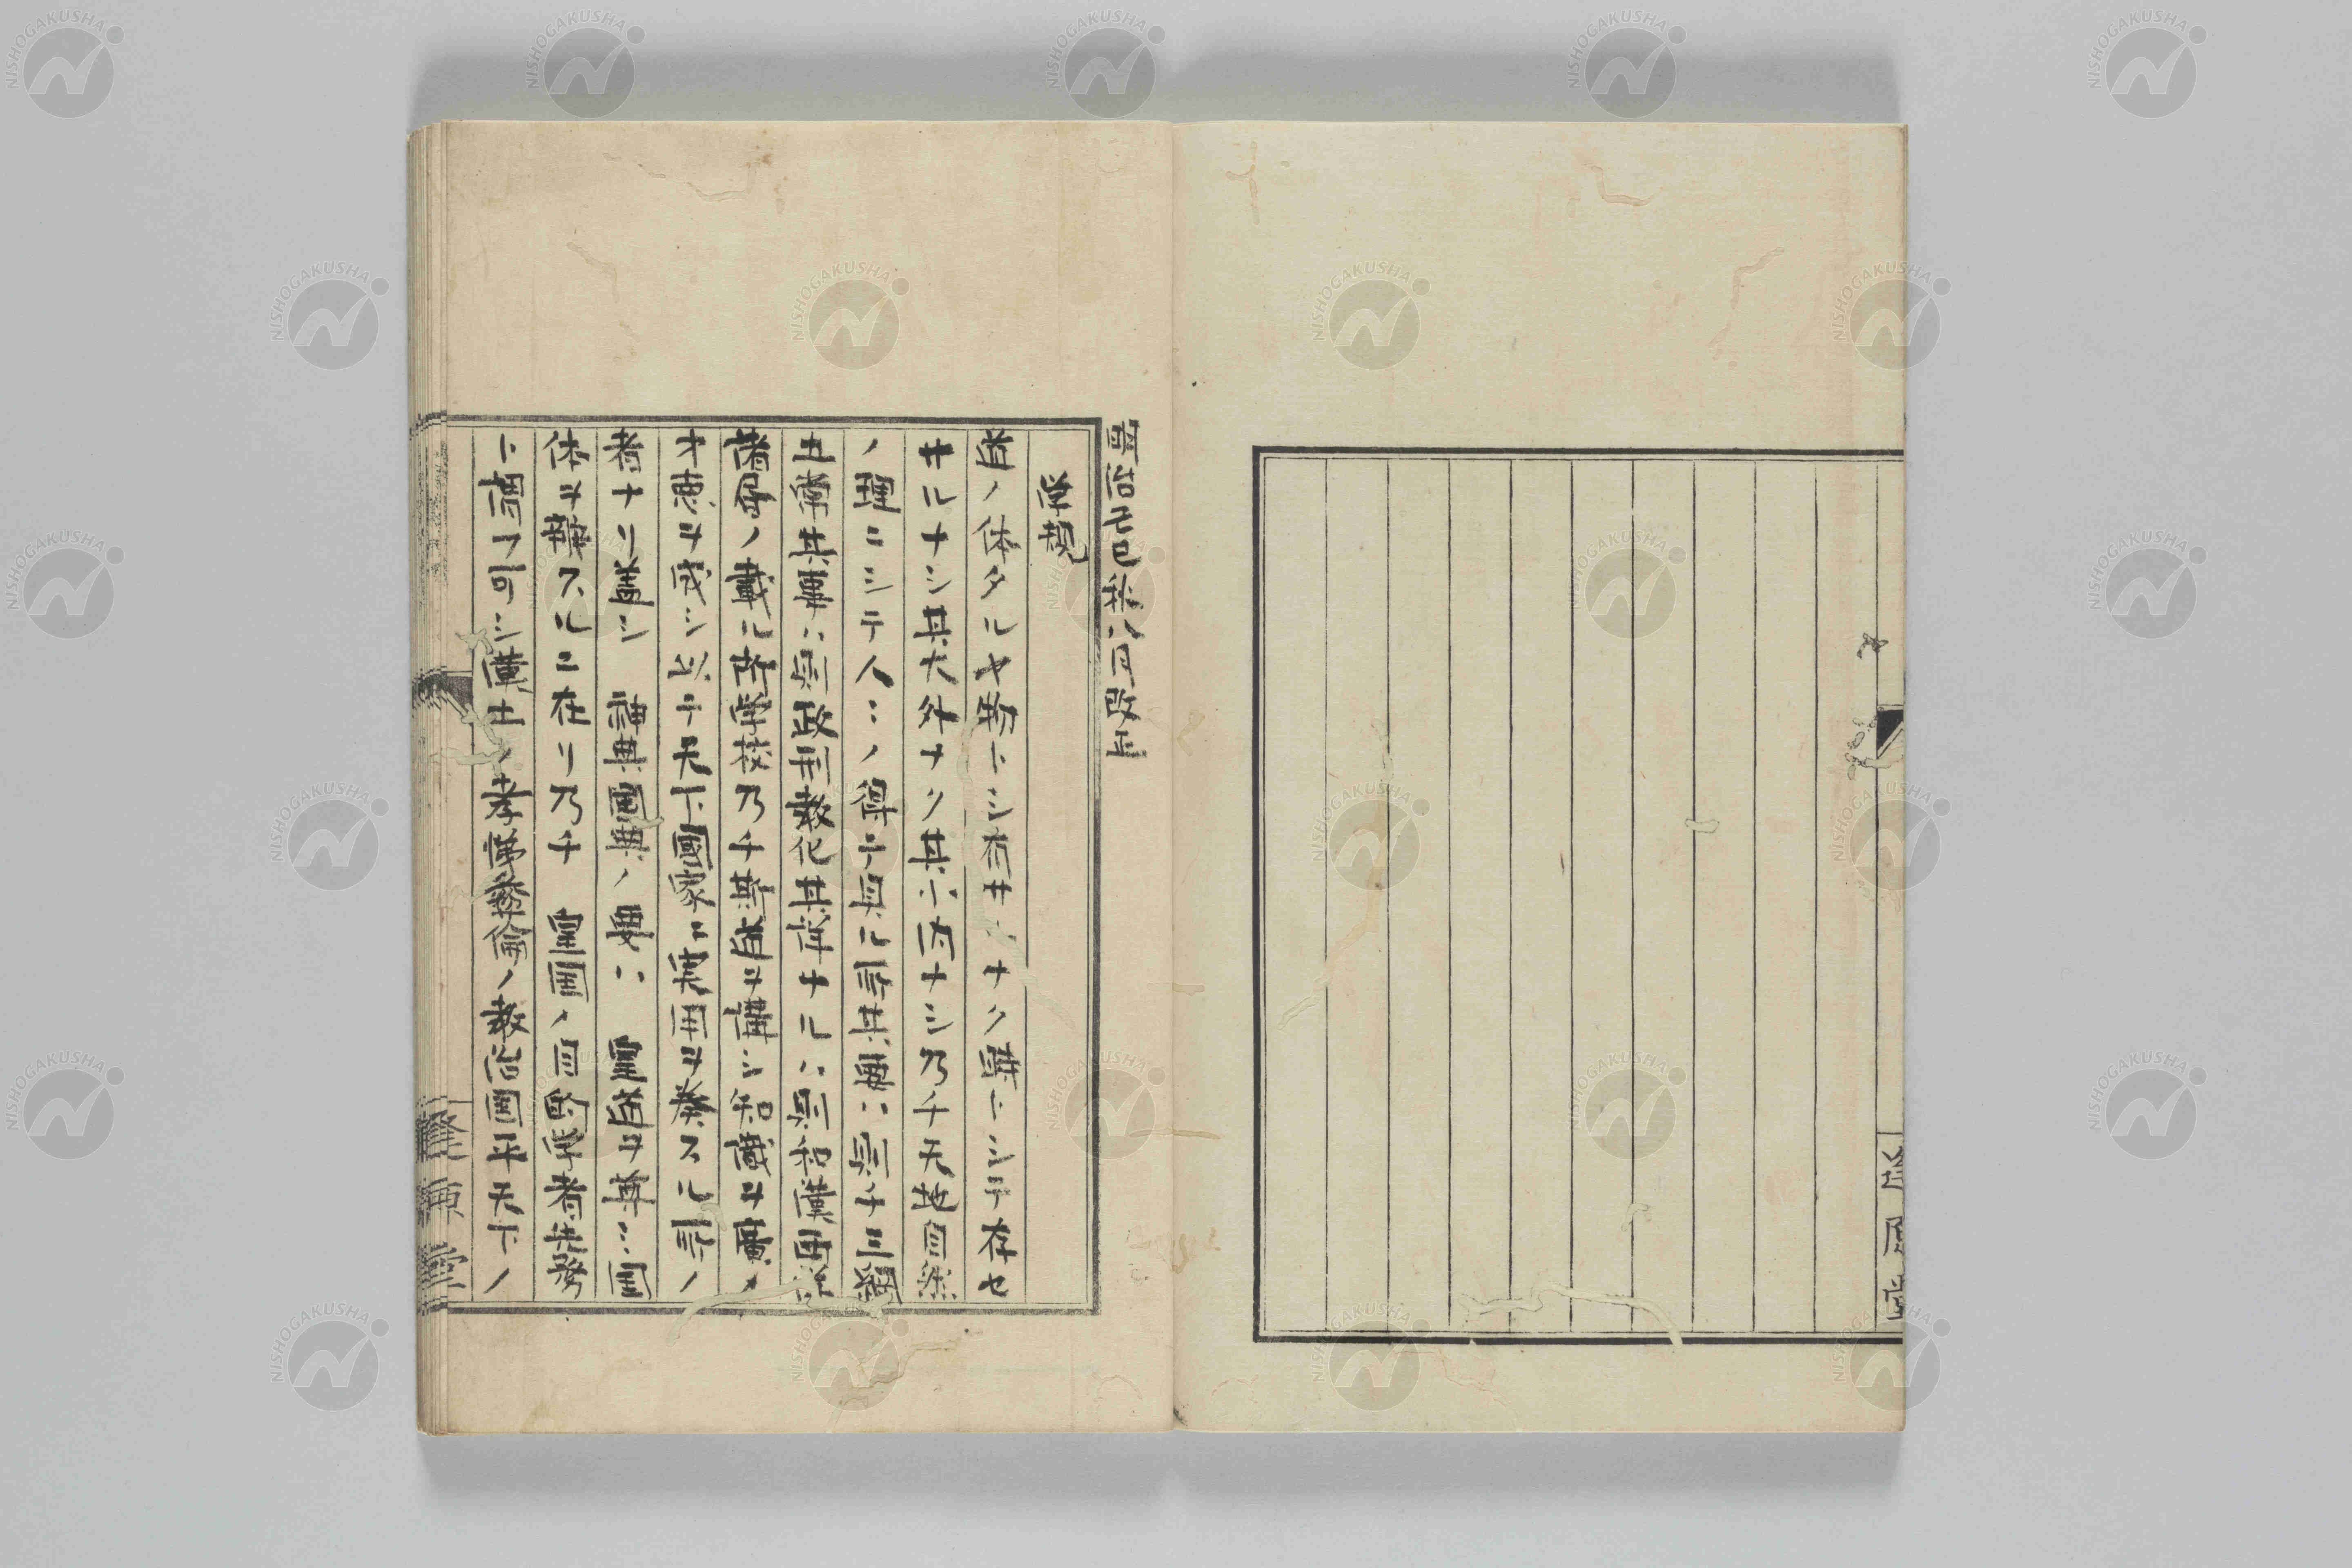 明治己巳秋八月改正
学規
道ノ体タルヤ物トシテ在サルナク時トシテ存セ
サルナシ其大外ナク其小内ナシ乃チ天地自然
ノ理ニシテ人々ノ得テ具ル所其要ハ則チ三綱
五常其事ハ則政刑教化其詳ナルハ則和漢西洋
諸書ノ載ル所学校乃チ斯道ヲ講シ知識ヲ廣メ
才徳ヲ成シ以テ天下國家ニ実用ヲ奏スル所ノ
者ナリ蓋シ 神典國典ノ要ハ 皇道ヲ尊ミ国
体ヲ辨スルニ在リ乃チ 皇国ノ目的学者先務
ト謂フ可シ漢土ノ孝悌彝倫ノ教治国平天下ノ
NISHOGAKUSHA